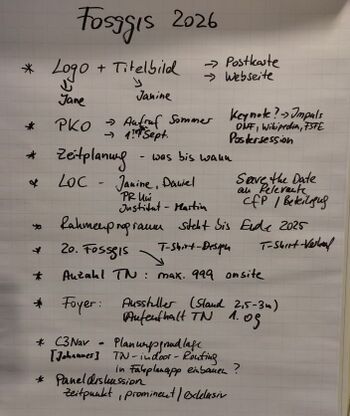 Fossgis 2026
* Logo + Titelbild → Postkarte
→ Webseite
Jane Janine
* PKO → Aufruf Sommer
→ 1. Sept.
Keynote? → Impuls
Wikipedia,
Postersession
* Zeitplanung - was bis wann
* LOC - Janine, Daniel
PR Uni
Institut - Martin
Save the Date
an Relevante
CfP / Beteiligung
* Rahmenprogramm steht bis Ende 2025
* 20. Fossgis T-Shirt-Design T-Shirt-Verkauf
* Anzahl TN: max. 999 onsite
* Foyer: Aussteller (Stand 2,5-3m)
Aufenthalt TN 1. OG
* C3Nav - Planungsgrundlage
[Johannes] TN-indoor-Routing
in Fahrplanapp einbauen?
* Paneldiskussion
Zeitpunkt, prominent / exklusiv